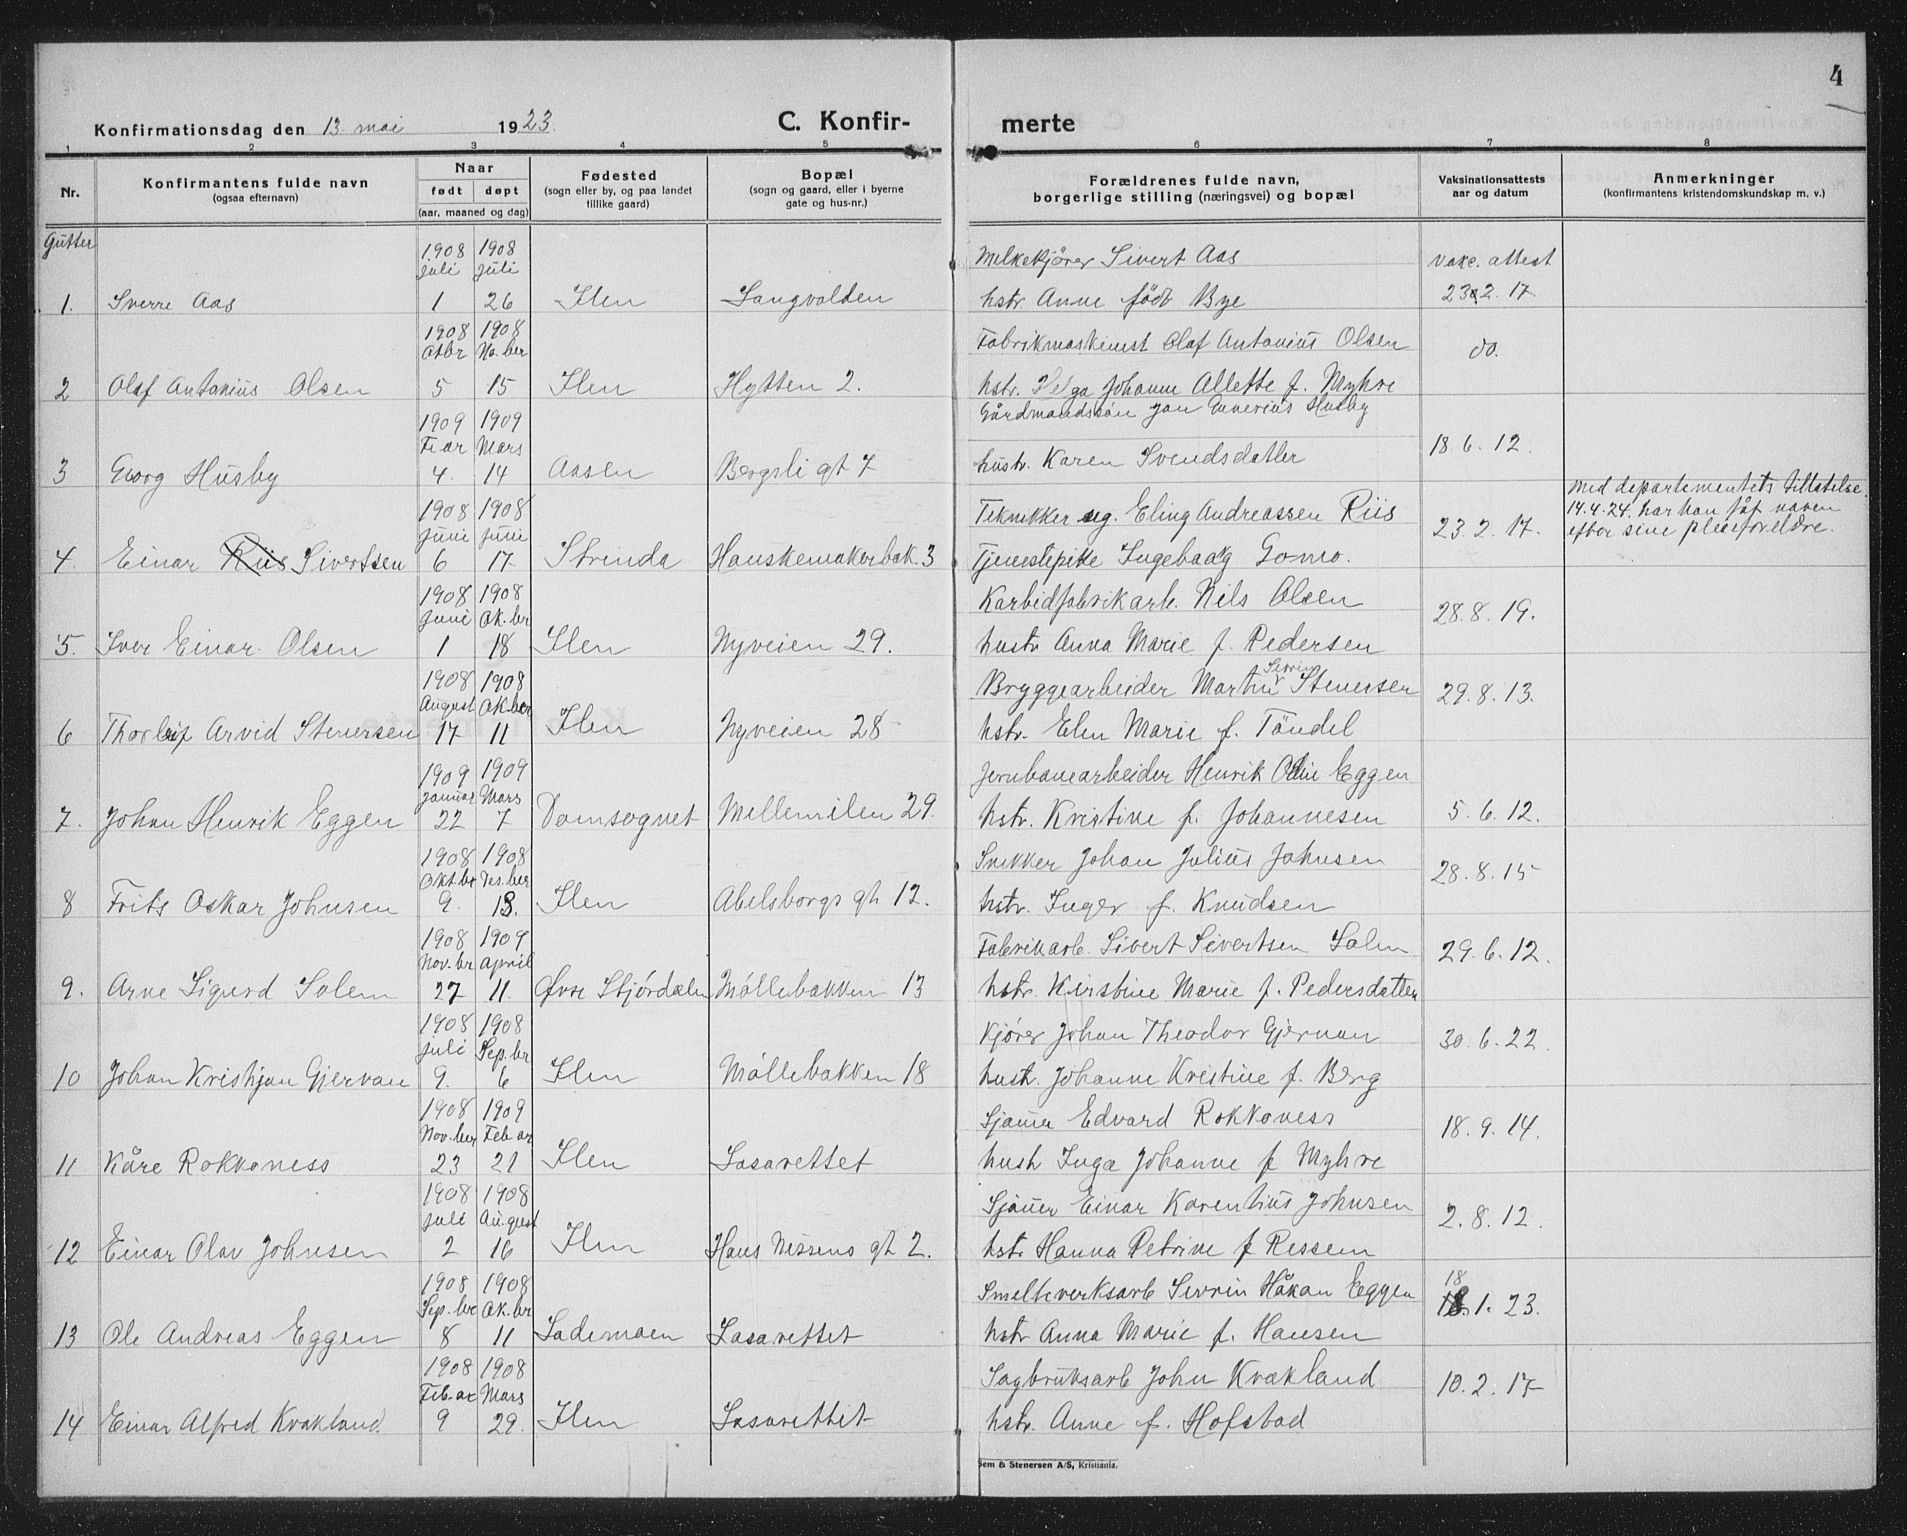 4
Konfirmationsdag den 13. mai 1923. C. Konfir- merte
1 2 3 4 5 6 7 8
Nr. Konfirmantens fulde navn Naar Fødested Bopæl Forældrenes fulde navn, Vaksinationsattests Anmerkninger
(ogsaa efternavn) født døpt (sogn eller by, og paa landet (sogn og gaard, eller i byerne borgerlige stilling (næringsvei) og bopæl aar og datum (konfirmantens kristendomskundskap m. v.)
(aar, maaned og dag) tillike gaard) gate og hus-nr.)
Gutter
1908 1908 Melkekjører Sivert Aas vakc. attest
Juli Juli
1. Sverre Aas 1 26 Ilen Sangvolden hstr. Anne født Bye 23 2. 17.
1908 1908 Fabrikmaskinist Olaf Antonius Olsen do.
Otbr No. ber
2 Olaf Antonius Olsen 5 15 Ilen Hytten 2. hstr. Helga Johanne Allette f. Myhre
1909 1909 Gårdmandssøn Jon Enverius Husby
Fe.ar Mars 18. 6. 12.
3 Georg Husby 4. 14 Aasen Bergsli gt 7 hustr. Karen Svendsdatter
1908 1908 Teknikker ug. Eling Andreassen Riis 23. 2. 17. Med departementets tillatelse
Juni Juni 14.4.24. har han fåt navn
efter sine pleieforeldre.
4. Einar Riis Sivertsen 6 17 Strinda Hanskemakerbak. 3 Tjenestepike Ingeborg Gomo.
1908 1908 Karbidfabrikarb. Nils Olsen 28. 8. 19.
Juni Ok. ber
5. Iver Einar Olsen 1 18 Ilen Nyveien 29. hustr Anna Marie f. Pedersen
1908 1908 Bryggearbeider Martin Severin Stenersen 29. 8. 13.
August Ok.ber
6 Thorleif Arvid Stenersen 17 11 Ilen Nyveien 28 hstr. Elen Marie f. Tøndel
1909 1909 Jernbanearbeider Henrik Odin Eggen
Januar Mars
7. Johan Henrik Eggen 22 7 Domsognet Mellemilen 29. hstr. Kristine f. Johannesen 5. 6. 12.
1908 1908 Snekker Johan Julius Johnsen 28. 8. 15
Okt.br Des.ber
8 Frits Oskar Johnsen 9. 13. Ilen Abelsborgs gt 12. hstr. Inger f. Knudsen
1908 1909 Fabrikarb. Sivert Sivertsen Solem 29. 6. 12.
Nov.br April
9. Arne Sigurd Solem 27 11. Øvre Stjørdalen Møllebakken 13 hstr. Kirstine Marie f. Pedersdatter
1908 1908 Kjører Johan Theodor Gjervan 30. 6. 22.
Juli Sep.br
10 Johan Kristjan Gjervan 9. 6 Ilen Møllebakken 18 hustr. Johanne Kristine f. Berg
1908 1909 Sjauer Edvard Rokkoness 18. 9. 14.
Nov.ber Feb.ar
11 Kåre Rokkoness 23 21 Ilen Lasarettet hustr Inga Johanne f Myhre
1908 1908 Sjauer Einar Karentius Johnsen 2. 8. 12.
Juli August
12 Einar Olav Johnsen 2 16 Ilen Hans Nissens gt 2. hstr Hanna Petrine f Ressem
1908 1908 Smelteverksarb Severin Håkan Eggen 18 1. 23.
Sep.ber Ok.br
13 Ole Andreas Eggen 8 11 Lademoen Lasarettet hstr Anna Marie f. Hansen
1908 1908 Sagbruksarb John Kvakland 10. 2. 17
Feb.ar Mars
14 Einar Alfred Kvakland. 9 29. Ilen Lasarettet hstr. Anne f. Hofstad
Sem & Stenersen A/S, Kristiania.